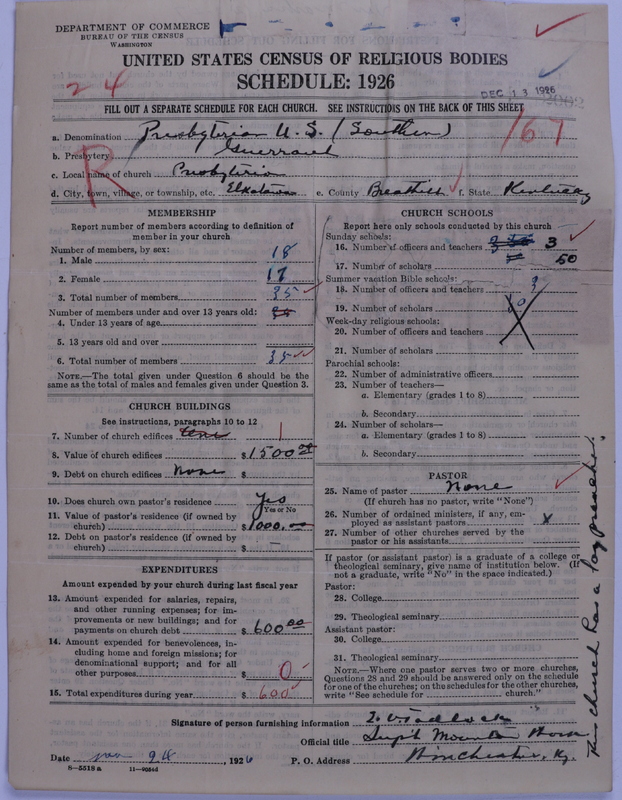 DEPARTMENT OF COMMERCE
BUREAU OF THE CENSUS
WASHINGTON
UNITED STATES CENSUS OF RELIGIOUS BODIES
SCHEDULE: 1926
24
DEC 13 1926
FILL OUT A SEPARATE SCHEDULE FOR EACH CHURCH. SEE INSTRUCTIONS ON THE BACK OF THIS SHEET
167
R
a. Denomination Presbyterian U.S. (Southern)
b. Presbytery Guerrant
c. Local name of church Presbyterian
d. City, town, village, or township, etc. Elkatawa e. County Breathitt f. State Kentucky
MEMBERSHIP
Report number of members according to definition of
member in your church
Number of members, by sex:
1. Male 18
2. Female 17
3. Total number of members 35
Number of members under and over 13 years old:
4. Under 13 years of age
5. 13 years old and over
6. Total number of members 35
NOTE.—The total given under Question 6 should be
same as the total of males and females given under Question 3.
CHURCH BUILDINGS
See instructions, paragraphs 10 to 12
7. Number of church edifices 1
8. Value of church edifices $1500.00
9. Debt on church edifices None $
10. Does church own pastor's residence Yes
Yes or No
11. Value of pastor's residence (if owned by
church) $1000.00
12. Debt on pastor's residence (if owned by
church) $ —
EXPENDITURES
Amount expended by your church during last fiscal year
13. Amount expended for salaries, repairs,
and other running expenses; for im-
provements or new buildings; and for
payments on church debt $600.00
14. Amount expended for benevolences, in-
cluding home and foreign missions; for
denominational support; and for all
other purposes $ 0
15. Total expenditures during year $600
CHURCH SCHOOLS
Report here only schools conducted by this church
Sunday schools:
16. Number of officers and teachers 3
17. Number of scholars 50
Summer vacation Bible schools:
18. Number of officers and teachers 3
19. Number of scholars
Week-day religious schools:
20. Number of officers and teachers
21. Number of scholars
Parochial schools:
22. Number of administrative officers
23. Number of teachers—
a. Elementary (grades 1 to 8)
b. Secondary
24. Number of scholars—
a. Elementary (grades 1 to 8)
b. Secondary
PASTOR
25. Name of pastor None
(If church has no pastor, write "None")
26. Number of ordained ministers, if any, em-
ployed as assistant pastors x
27. Number of other churches served by the
pastor or his assistants
If pastor (or assistant pastor) is a graduate of a college or
theological seminary, give name of institution below. (If
not a graduate, write "No" in the space indicated.)
Pastor:
28. College
29. Theological seminary
Assistant pastor:
30. College
31. Theological seminary
NOTE.—Where one pastor serves two or more churches,
Questions 28 and 29 should be answered only on the schedule
for one of the churches; on the schedules for the other churches,
write "See schedule for church."
This church has a lay preacher.
Signature of person furnishing information
Official title Supt Mountain Work
Date 24, 1926 P. O. Address Winchester, Ky.
8—5518 a